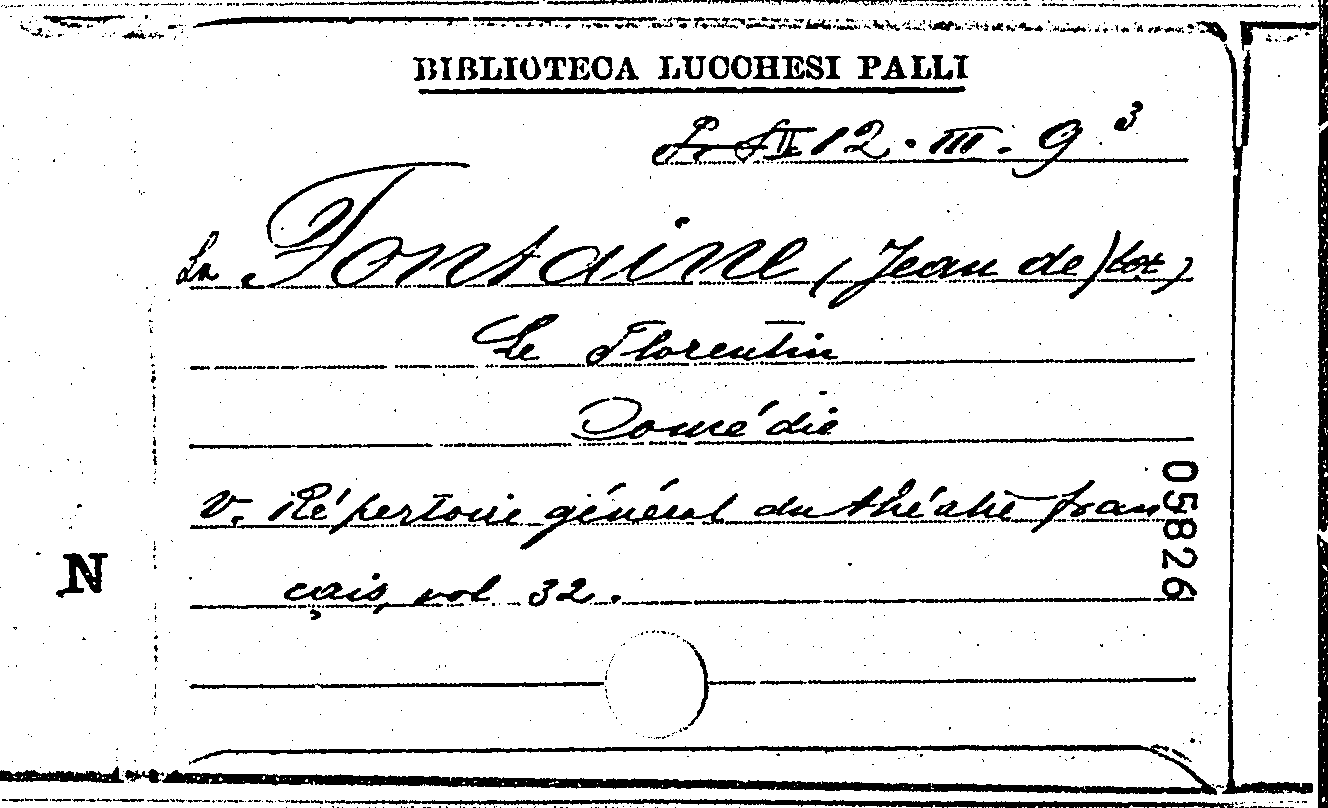 BIBLIOTECA LUCCHESI PALLI
12. III. 9 3
La Fontaine (Jean de)
Le Florentin
Comédie
V. Répertoire général du théatre fran
çais, vol 32.
05826
N